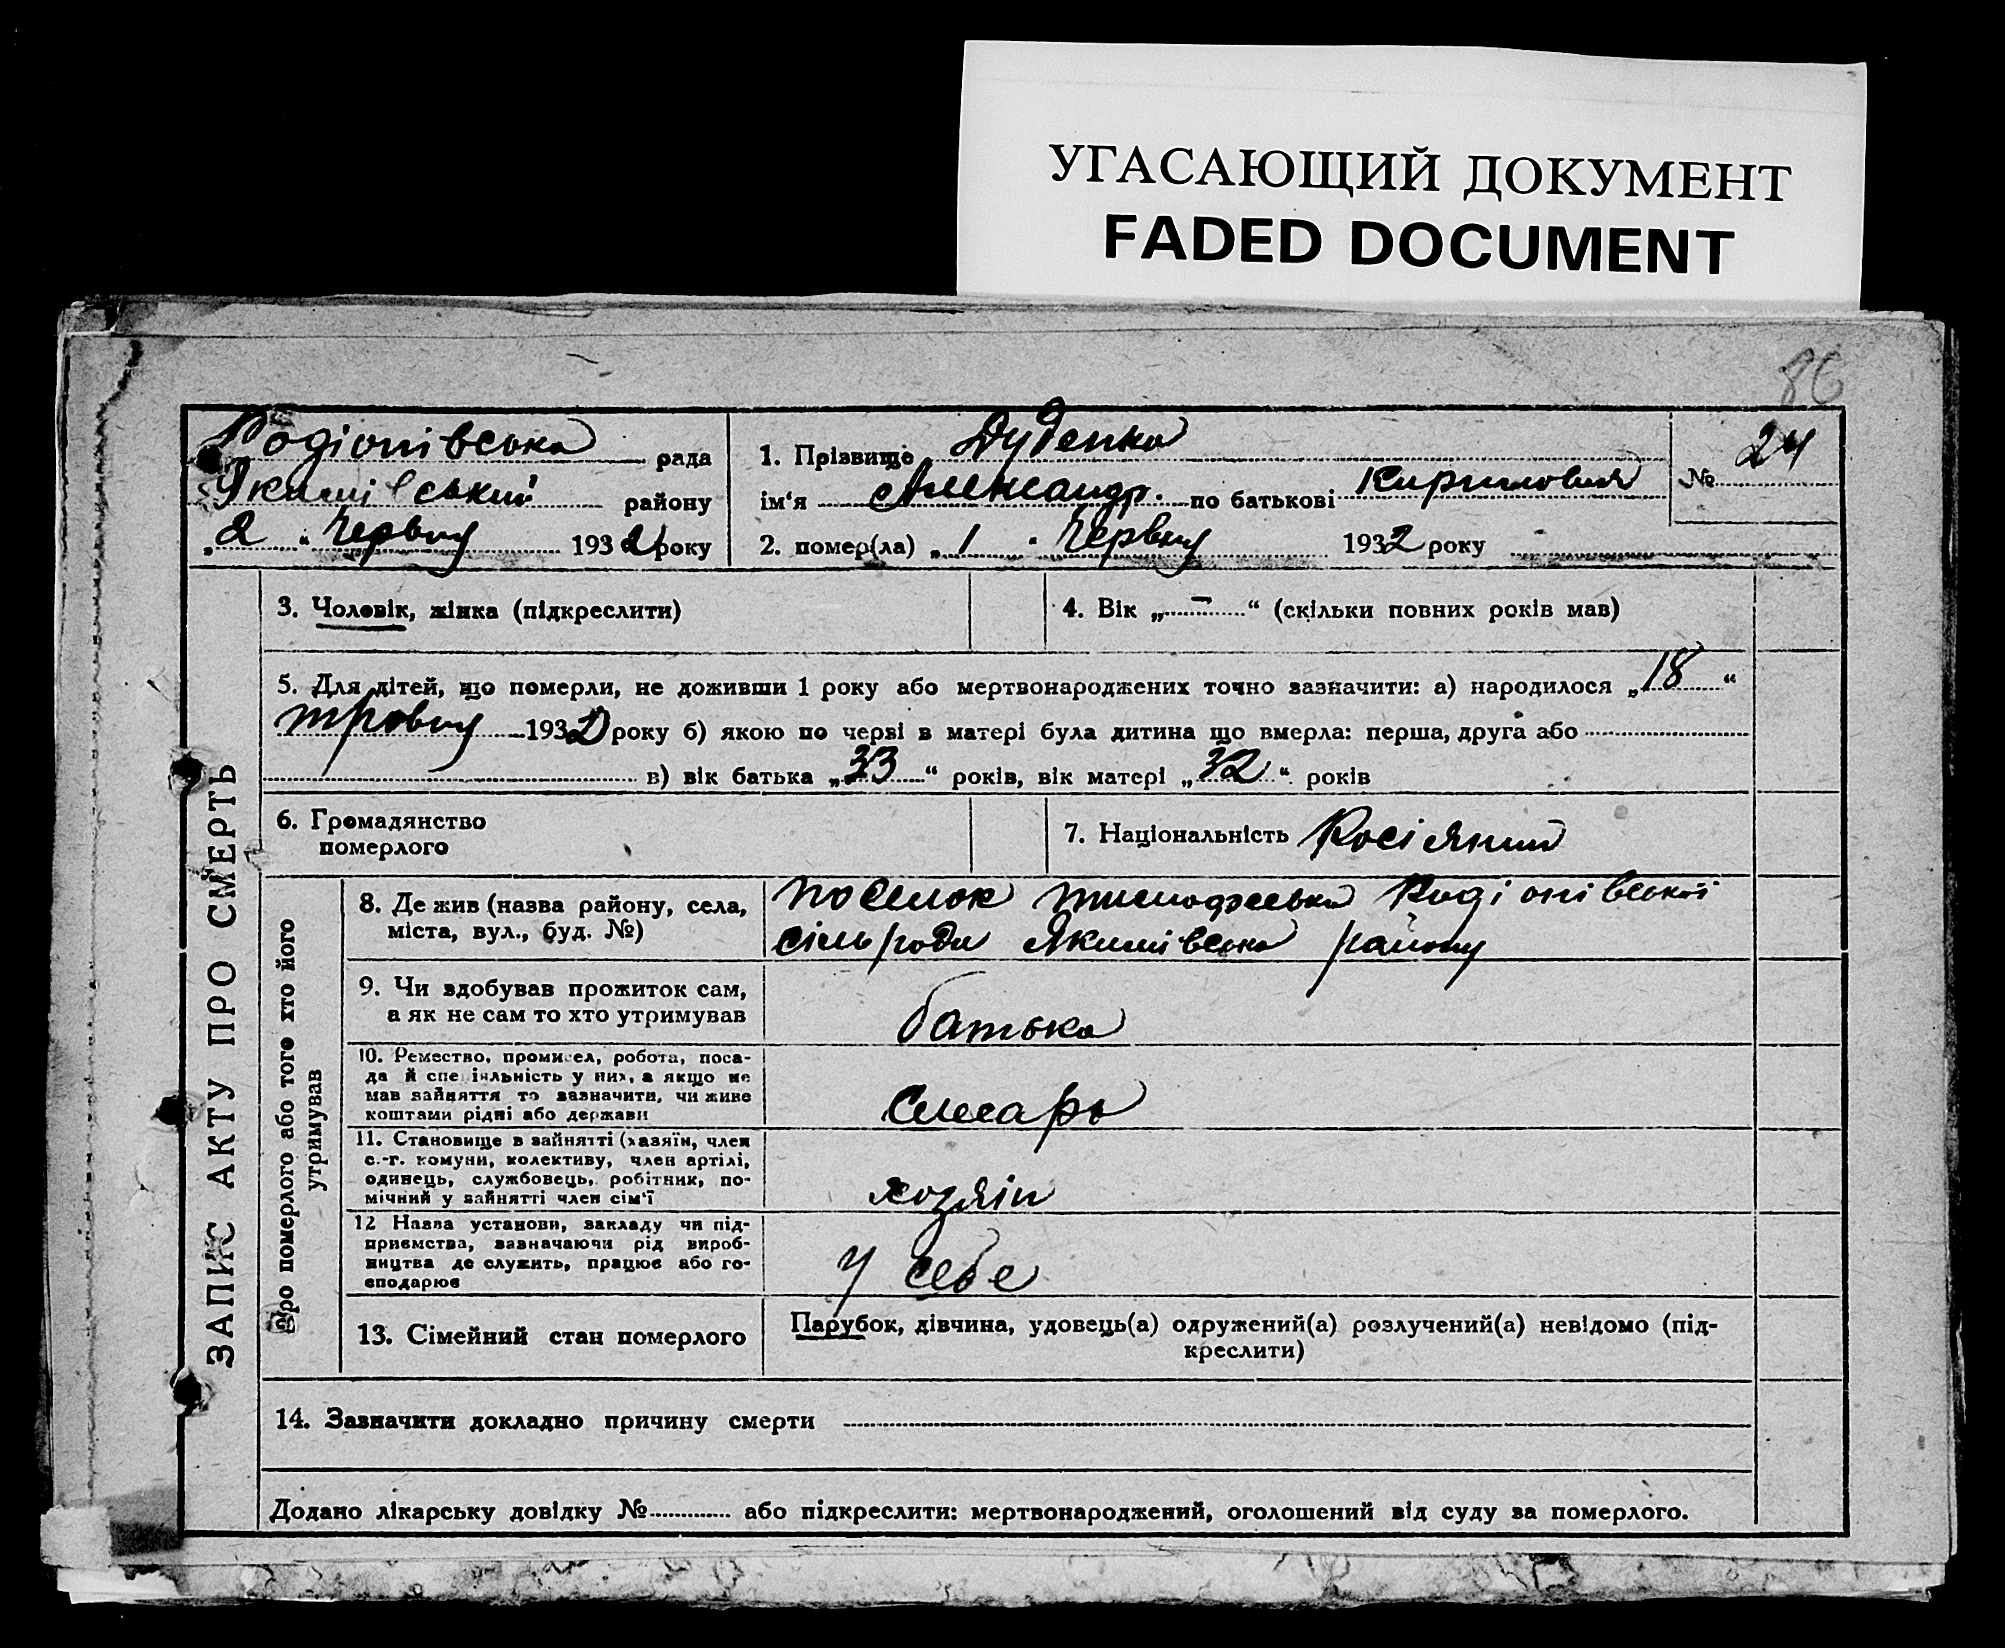 УГАСАЮЩИЙ ДОКУМЕНТ
FADED DOCUMENT
86
Родіонівська рада
Якимівський району
„2“ Червня 1932 року
1. Прізвище Дуденко
ім‘я Александр. по батькові Кирилович
2. помер(ла) „1“ Червня 1932 року
№ 24
ЗАПИС АКТУ ПРО СМЕРТЬ
3. Чоловік, жінка (підкреслити)
4. Вік „–“ (скільки повних років мав)
5. Для дітей, що померли, не доживши 1 року або мертвонароджених точно зазначити: а) народилося „18“
травня 1932 року б) якою по черзі в матері була дитина що вмерла: перша, друга або
в) вік батька „33“ років, вік матері „32“ років
6. Громадянство
померлого
7. Національність Росіянин
Про померлого або того хто його
утримував
8. Де жив (назва району, села,
міста, вул., буд. №)
поселок Родіонівської
сільради Якимівська району
9. Чи здобував прожиток сам,
а як не сам то хто утримував
батько
10. Ремество, промисел, робота, поса-
да й спеціяльність у них, а якщо не
мав зайняття то зазначити, чи живе
коштами рідні або держави
Слесарь
11. Становище в зайнятті (хазяїн, член
с.-г. комуни, колективу, член артілі,
одинець, службовець, робітник, по-
мічний у зайнятті член сім‘ї
хозяін
12 Назва установи, закладу чи під-
приємства, зазначаючи рід вироб-
ництва де служить, працює або го-
сподарює
у себе
13. Сімейний стан померлого
Парубок, дівчина, удовець(а) одружений(а) розлучений(а) невідомо (під-
креслити)
14. Зазначити докладно причину смерти
Додано лікарську довідку № або підкреслити: мертвонароджений, оголошений від суду за померлого.